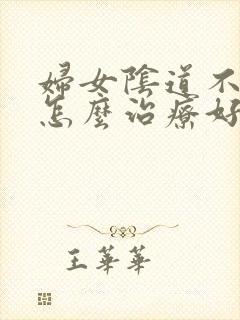 婦女陰道不
怎麼治療好
王華華